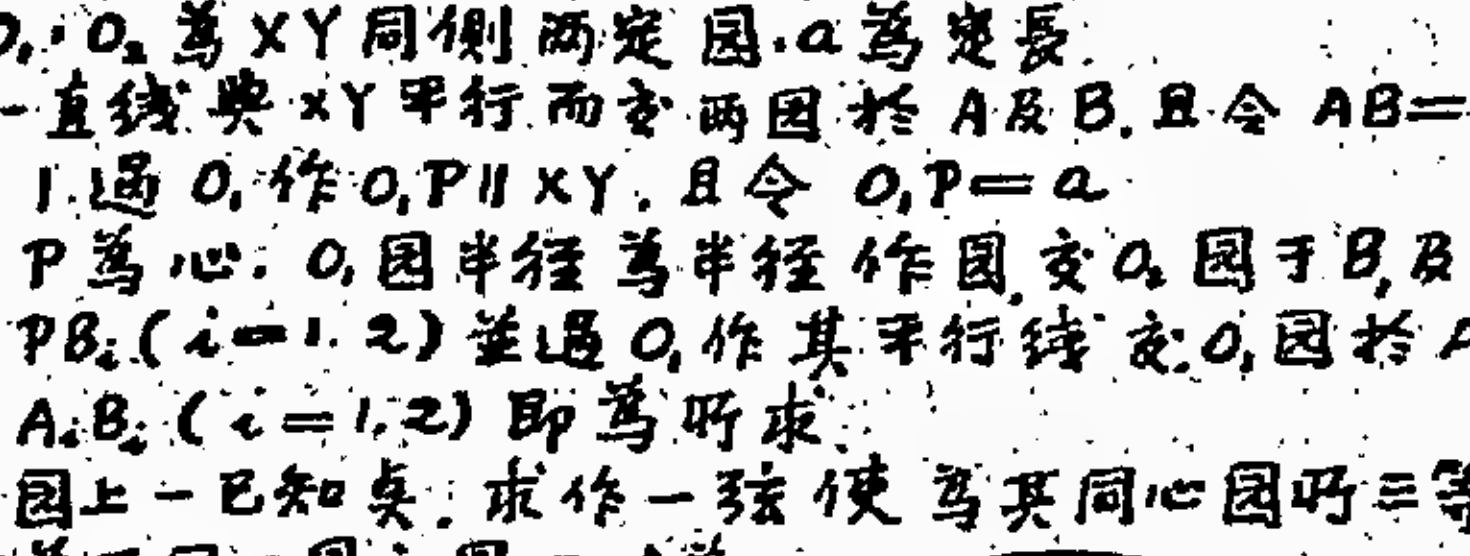 O₁.O₂為XY同側兩定园.a為定長.
一直线與XY平行而交两园於A及B.且令AB=
1.過O₁作O₁P∥XY.且令O₁P=a
P為心.O₁园半径為半径作园.交O₂园于B₁及
PBᵢ(i=1.2)並過O₁作其平行线交O₁园於A
AᵢBᵢ(i=1,2)即為所求.
园上一已知點.求作一弦使為其同心园所三等